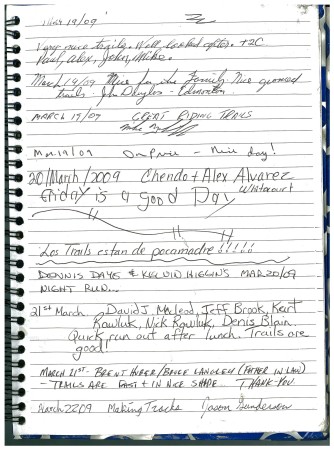 Mar 19/09
Very nice trails. Well looked after. +2C
Paul, Alex, John, Mike.
March 19/09 Nice day for the Family. Nice groomed
trails. John Douglas - Edmonton
MARCH 19/09 GREAT RIDING TRAILS
Mar. 19/09 - Nice day!
20/March/2009 Chendo + Alex Alvarez
Friday is a good Day Whitecourt
Los Trails estan de pocamadre!!!!!
DENNIS DAYS & KELVIN HIGGINS MAR 20/09
NIGHT RUN...
21st March. David J. McLeod, Jeff Brook, Kurt
Rowluk, Nick Rowluk, Denis Blain.
Quick run out after lunch. Trails are
good!
MARCH 21st - BRENT HUBER/BRUCE LANGLEY (FATHER IN LAW)
- TRAILS ARE FAST + IN NICE SHAPE. THANK-YOU
March 22 09 Making Tracks Jason Gunderson